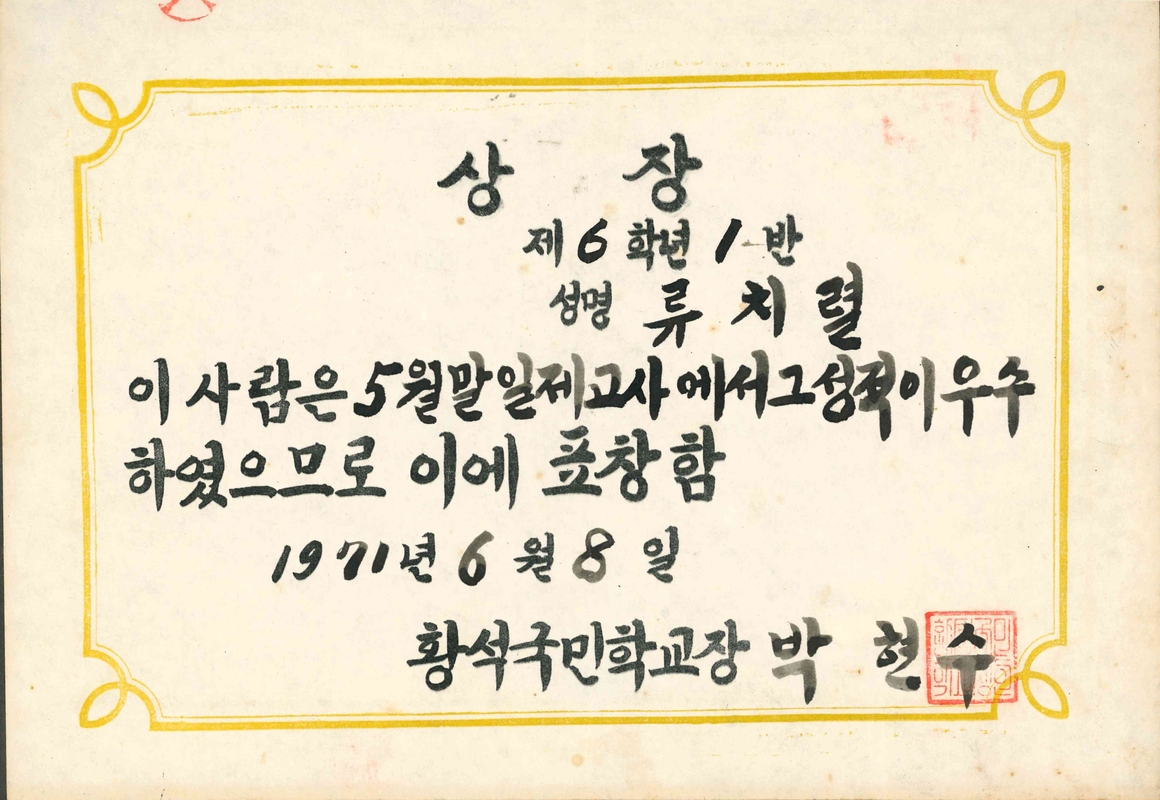 상 장
제 6 학년 1 반
성명 류 치 렬
이 사람은 5월말일제고사에서 그 성적이 우수
하였으므로 이에 표창함
1971년 6월 8일
황석국민학교장 박 현 수